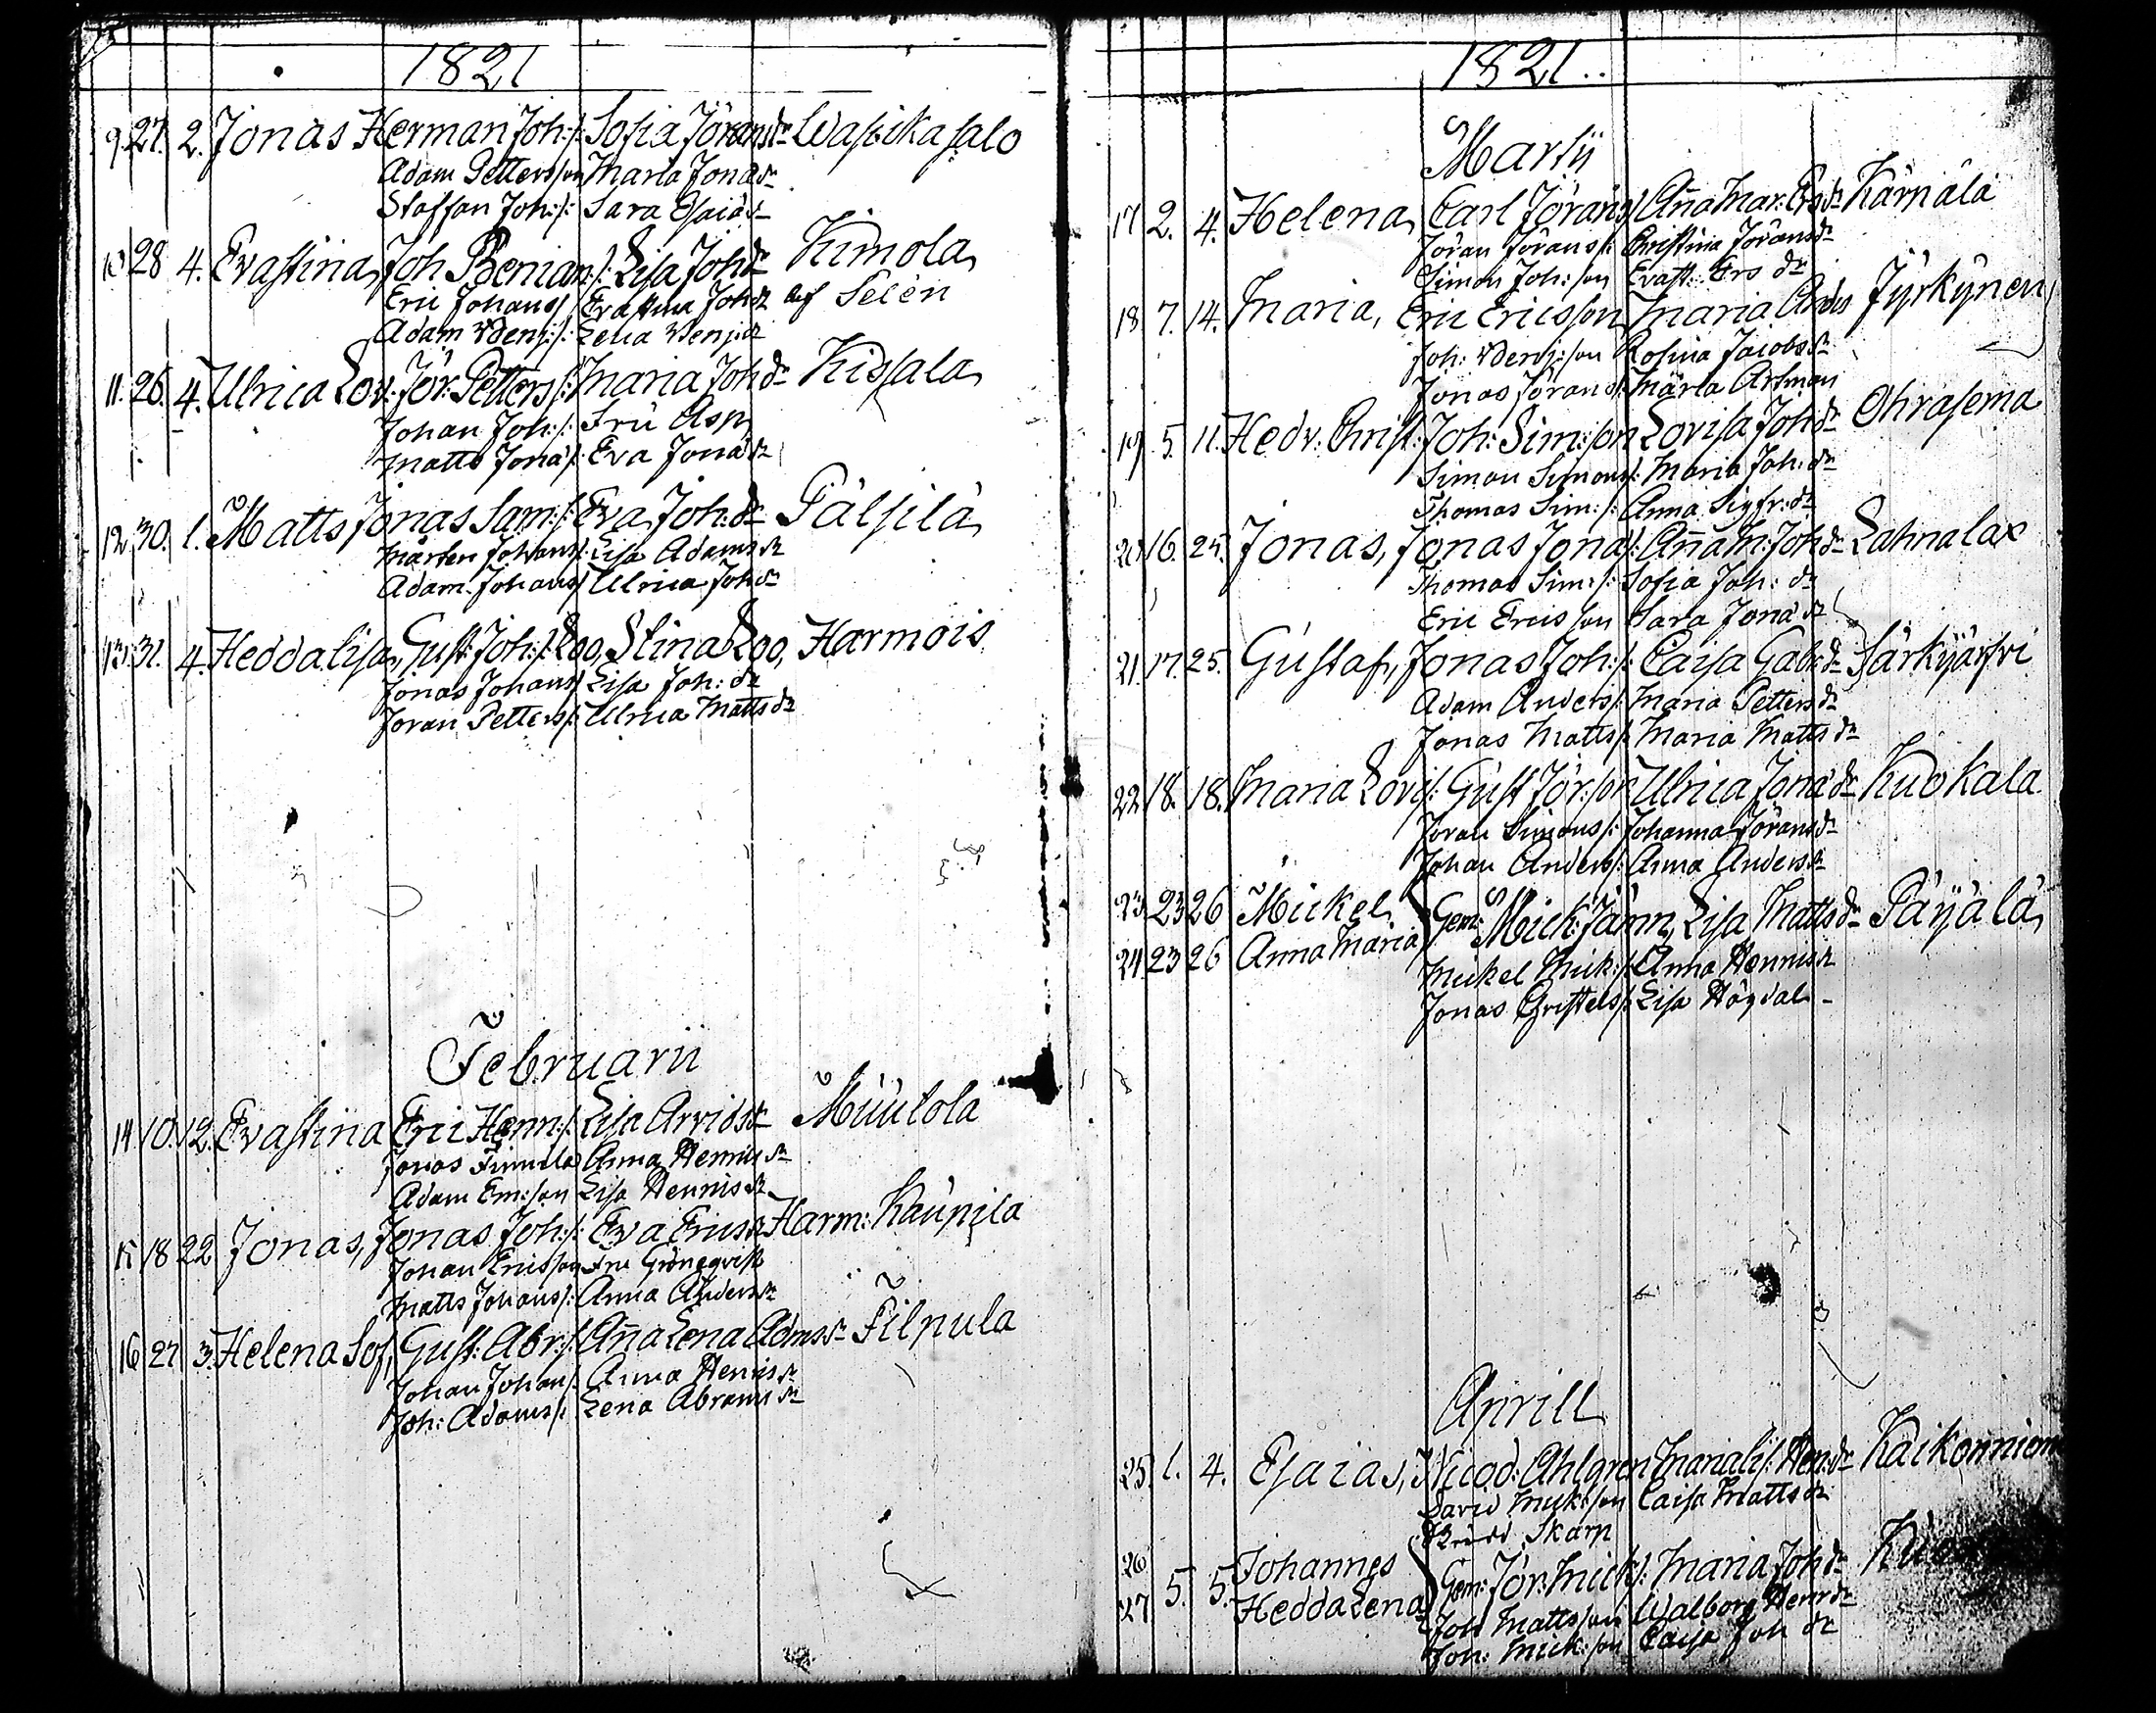 1821
9. 27. 2. Jonas Herman Joh:s/: Sofia Jöransdr Wasikasalo
Adam Pettersson Maria Jonadr
Staffan Joh:s/: Sara Esaiædr
10 28 4. Evastina, Joh Beniam:s/: Lisa Johdr Kimola
Eric Johans/ Evastina Johdr af Selén
Adam Benj:s/: Lena Benj:dr
11. 26. 4. Ulrica Lov. Jör: Petters/: Maria Johdr Kissala
Johan Joh:s/: Fru Asp
Matts Jonas/: Eva Jonædr
12. 30. 1. Matts Jonas Sam:s/: Eva Joh:dr Pälsilä
Mårten Johans/: Lisa Adamsdr
Adam Johans/ Ulrica Johdr
13. 31. 4. Heddalisa, Gust: Joh:s/: Roo, Stina Roo, Harmois
Jonas Johans/ Lisa Joh:dr
Joran Petters/: Ulrica Mattsdr
Februarii
14 10. 12. Evastina Eric Henn:s/: Lisa Arvidsdr Muulola
Jonas Fimula Anna Henricsdr
Adam Em:son Lisa Hennisdr
15 18 22 Jonas, Jonas Joh:s/: Eva Ericsdr Harm: Kaupila
Johan Ericsson Fru Grönqvist
Matts Johans/: Anna Andersdr
16 27 3. Helena Sof, Gust: Abr:s/: Aña Lena Admsdr Filpula
Johan Johans/: Anna Henricsdr
Joh: Adams/: Lena Abramsdr
1821..
Martii
17 2. 4. Helena, Carl Jörans/ Aña Mar: Ersdr Kärnälä
Jöran Jörans/: Cristina Jöransdr
Simon Joh:son Evast: Ers dr
18 7. 14. Maria, Eric Ericsson Maria Andrs Jyrkynen
Joh: Benj:son Rosina Jacobsdr
Jonas Jörans/: Märta Artman
19 5. 11. Hedv: Christ: Joh: Sim:son Lovisa Johdr Ohrasema
Simon Simons/: Maria Joh:dr
Thomas Sim:s/: Anna Sigfr:dr
20 16. 25. Jonas, Jonas Jonas/: Aña M: Johdr Lahnalax
Thomas Sim:s/: Sofia Joh: dr
Eric Ericsson Sara Jonædr
21. 17. 25. Gustaf, Jonas Joh:s/: Caisa Gabrdr Särkijärfvi
Adam Anders/: Maria Pettersdr
Jonas Matts/: Maria Mattsdr
22 18. 18. Maria Lovis: Gust Jör:son Ulrica Jonædr Kuokala
Joran Simons/: Johanna Jöransdr
Johan Anders/: Anna Andersdr
23 23 26 Mickel } Gem: Mick: Jämn, Lisa Mattsdr Päijälä
24 23 26 Anna Maria
Mickel Mick:s/: Anna Hennisdr
Jonas Cristers/: Lisa Högdal
Aprill
25 1. 4. Esaias, Nicod: Ahlgren Marialis: Hen:dr Kaikonniem
David Mick:son Caisa Mattsdr
Skarp
26 Johannes } Gem: Jör: Mick:s/: Maria Johdr
27 5. 5. Hedda Lena
Joh Mattsson Walborg Henrdr
Jon: Mick:son Caisa Joh dr